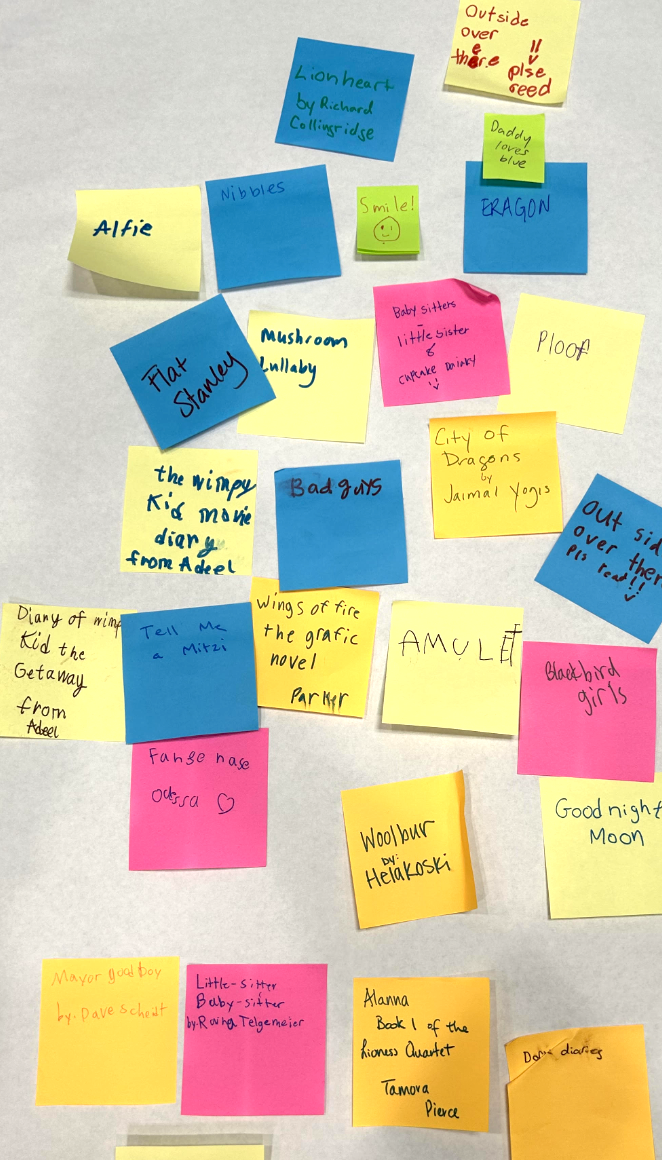 Outside
over
there
plse
reed
Lionheart
by Richard
Collingridge
Daddy
loves
blue
Alfie
Nibbles
Smile!
ERAGON
Flat
Stanley
Mushroom
Lullaby
Baby sitters
little sister
Ploof
City of
Dragons
by
Jaimal Yogis
the wimpy
Kid movie
diary
from Adeel
Bad guys
out sid
over ther
pls read!!
Diary of wimp
Kid the
Getaway
from
Adeel
Tell Me
a Mitzi
Wings of fire
the grafic
novel
Parker
AMULET
Blackbird
girls
Odessa
Woolbur
by:
Helakoski
Good night
Moon
Mayor good boy
by. Dave Scheidt
Little-sitter
Baby-sitter
by: Raina Telgemeier
Alanna
Book 1 of the
Lioness Quartet
Tamora
Pierce
diaries